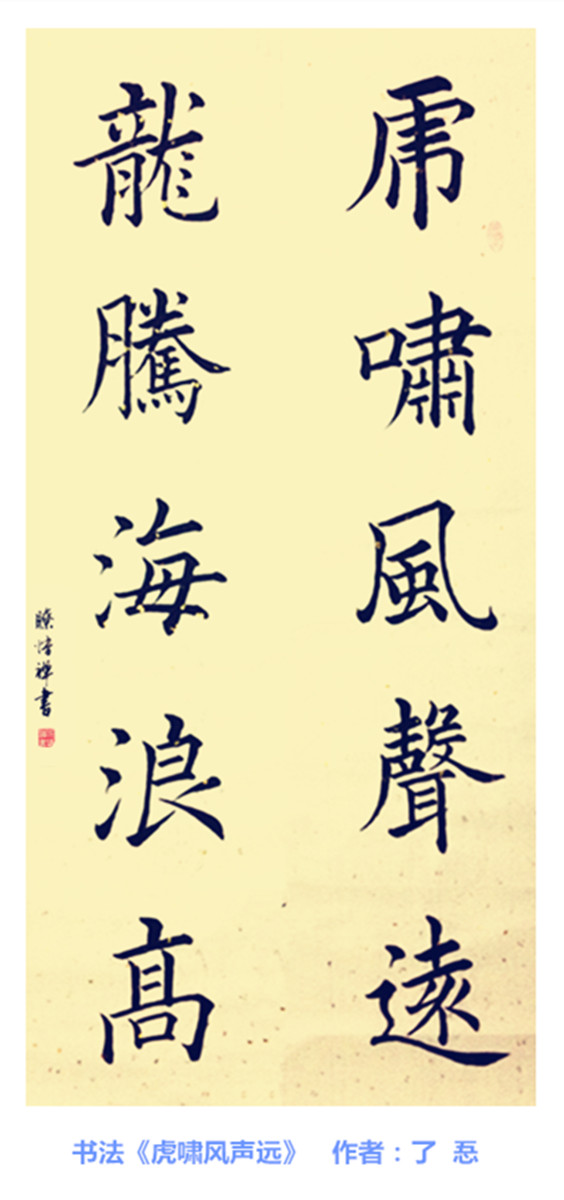 虎嘯風聲遠
龍騰海浪高
瞭悟禪書
书法《虎啸风声远》 作者：了 忢